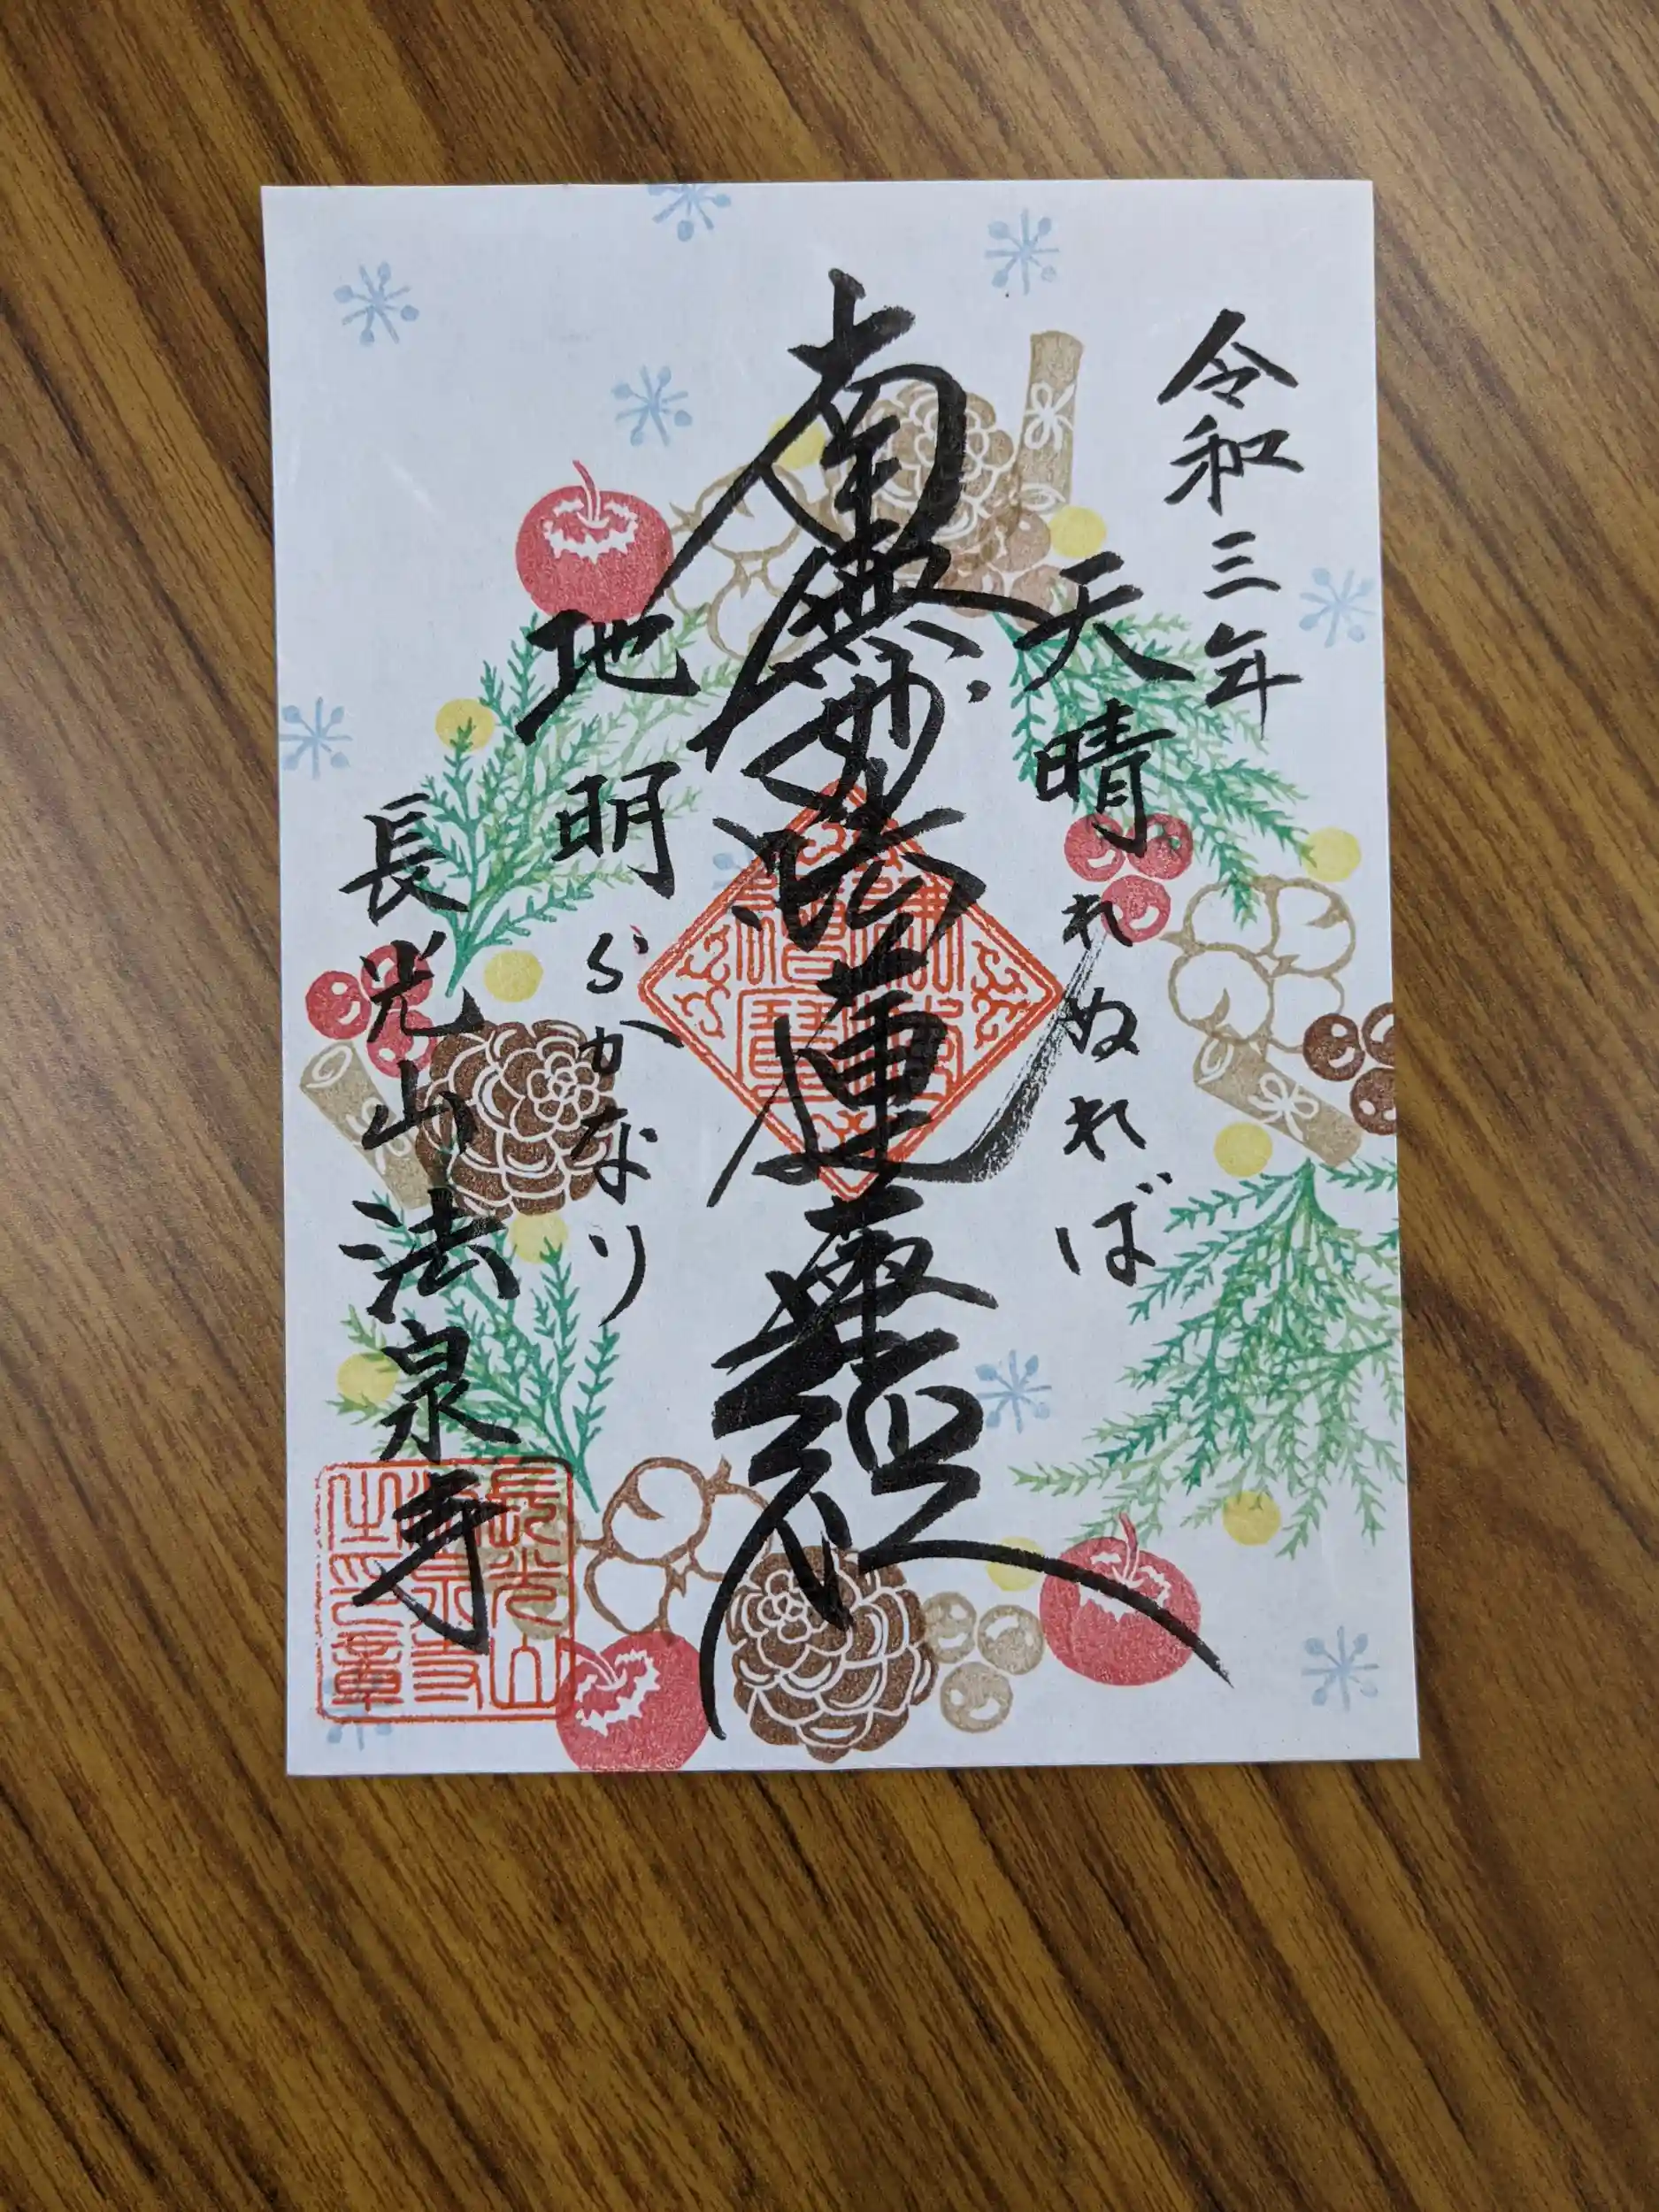 令和三年
天晴れぬれば
南無妙法蓮華経
地明らかなり
長光山法泉寺
長光山法泉寺之印章